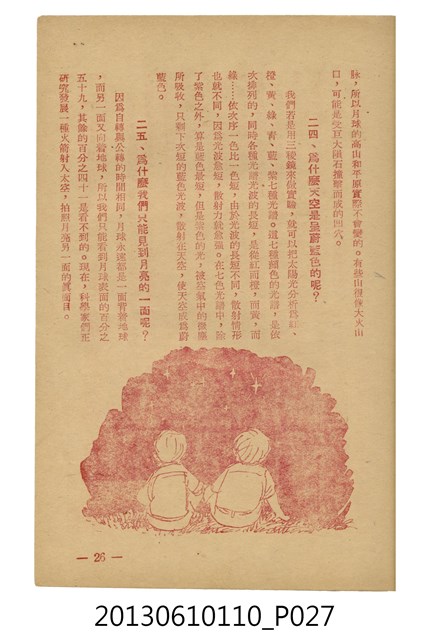 脉，所以月球的高山和平原實際不會變的。有些山很像大火山
口，可能是受巨大隕石撞擊而成的凹穴。
二四、爲什麼天空是呈蔚藍色的呢？
我們若是用三稜鏡來做實驗，就可以把太陽光分析爲紅、
橙、黃、綠、青、藍、紫七種光譜。這七種顏色的光譜，是依
次排列的，同時各種光譜光波的長短，是從紅而橙，而黃，而
綠……依次序一色比一色短，由於光波的長短不同，散射情形
也就不同，因爲光波愈短，散射力就愈强。在七色光譜中，除
了紫色之外，算是藍色最短，但是紫色的光，被空氣中的微塵
所吸收，只剩下次短的藍色光波，散射在天空，使天空成爲蔚
藍色。
二五、爲什麼我們只能見到月亮的一面呢？
因爲自轉與公轉的時間相同，月球永遠都是一面背着地球
，而另一面又向着地球，所以我們只能看到月球表面的百分之
五十九，其餘的百分之四十一是看不到的。現在，科學家們正
研究發展一種火箭射入太空，拍照月亮另一面的眞面目。
— 26 —
20130610110_P027